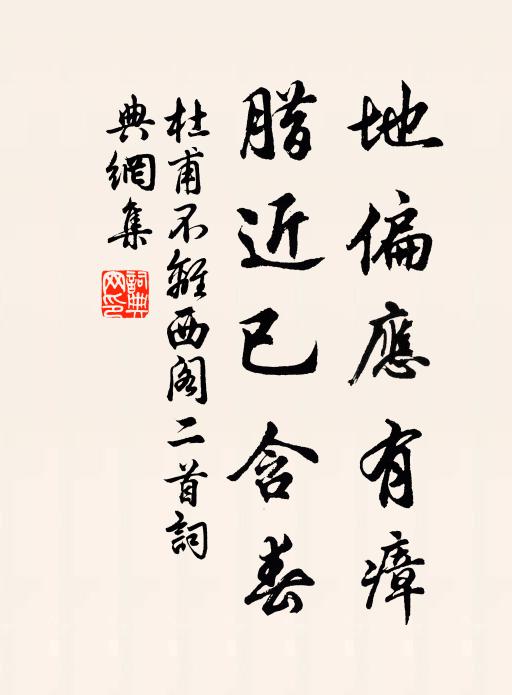 地偏應有瘴
腊近已含春
杜甫不離西阁二首詞
典網集
詞典
网印